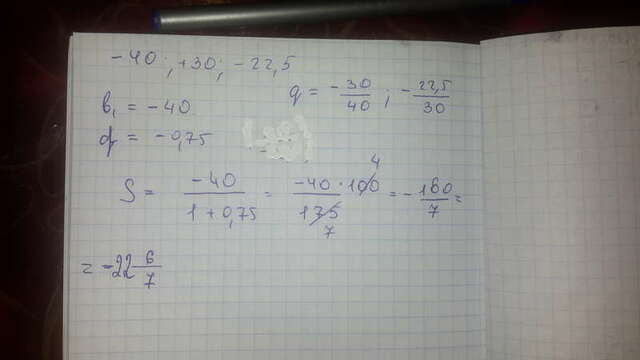 -40; +30; -22,5
q = -30/40 ; -22,5/30
b₁ = -40
q = -0,75
S = -40/(1+0,75) = -40·100/175 = -160/7 =
4
7
= -22 6/7